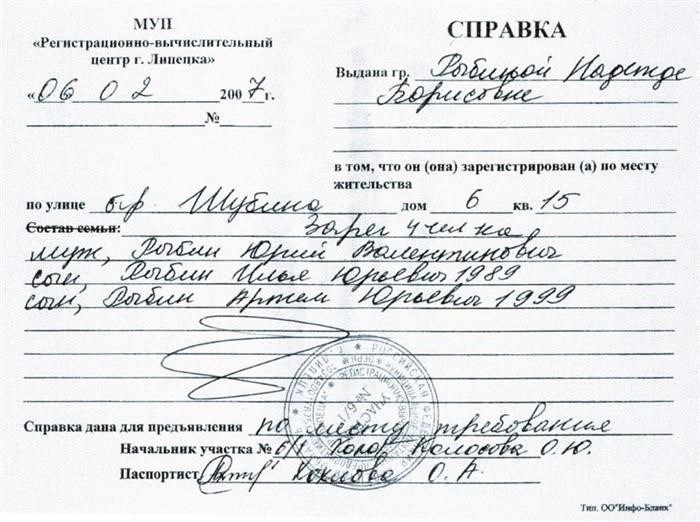 МУП
«Регистрационно-вычислительный
центр г. Липецка»
«06 02 2007 г.
№
СПРАВКА
Выдана гр. Рыбиной Надежде
Борисовне
в том, что он (она) зарегистрирован (а) по месту
жительства
по улице б-р Шубина дом 6 кв. 15
Состав семьи: Зарег 4 чел на
муж, Рыбин Юрий Валентинович
сын, Рыбин Илья Юрьевич 1989
сын, Рыбин Артем Юрьевич 1999
Справка дана для предъявления по месту требования
Начальник участка № 6/1 Колосова О.Ю.
Паспортист О. А.
Тип. ОО"Инфо-Бланк"